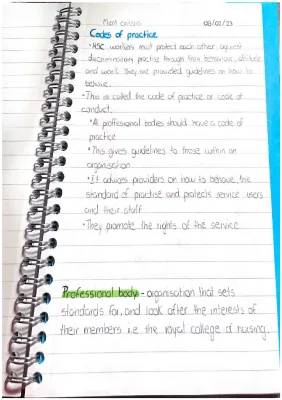 08/02/23
Codes of practice
• HSC workers must protect each other against
discriminatory practise through their behaviour, attitude
and work. They are provided guidelines on how to
behave.
• This is called the code of practice or code of
conduct.
• All proffesional bodies should have a code of
practice
• This gives guidelines to those within an
organisation
• It advises providers on how to behave, the
standard of practise and protects service users
and their staff
• They promote the rights of the service
Professional body - organisation that sets
standards for, and look after the interests of
their members i.e the royal college of nursing.